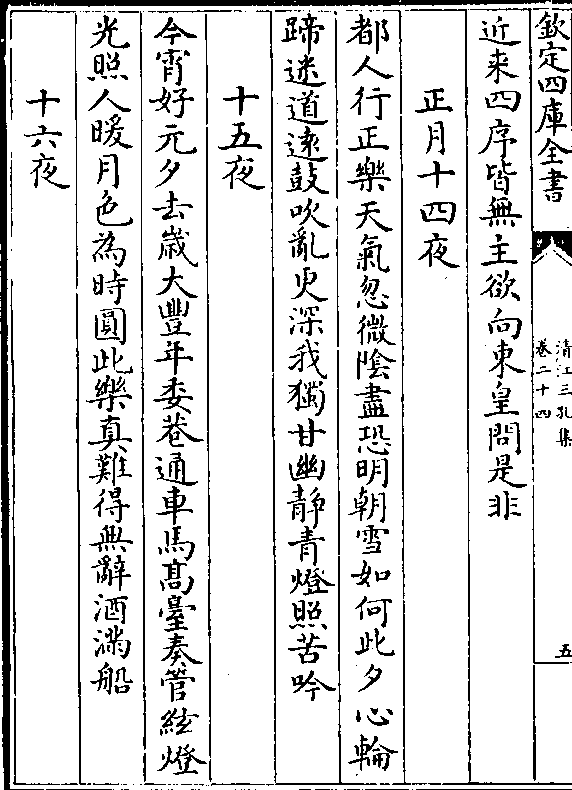 欽定四庫全書
清江三孔集
卷二十四
五
近来四序皆無主欲向東皇問是非
正月十四夜
都人行正樂天氣忽微陰盡恐明朝雪如何此夕心輪
蹄迷道遠鼓吹亂更深我獨甘幽靜青燈照苦吟
十五夜
今宵好元夕去歳大豐年委巷通車馬髙臺奏管絃燈
光照人暖月色為時圓此樂真難得無辭酒滿船
十六夜